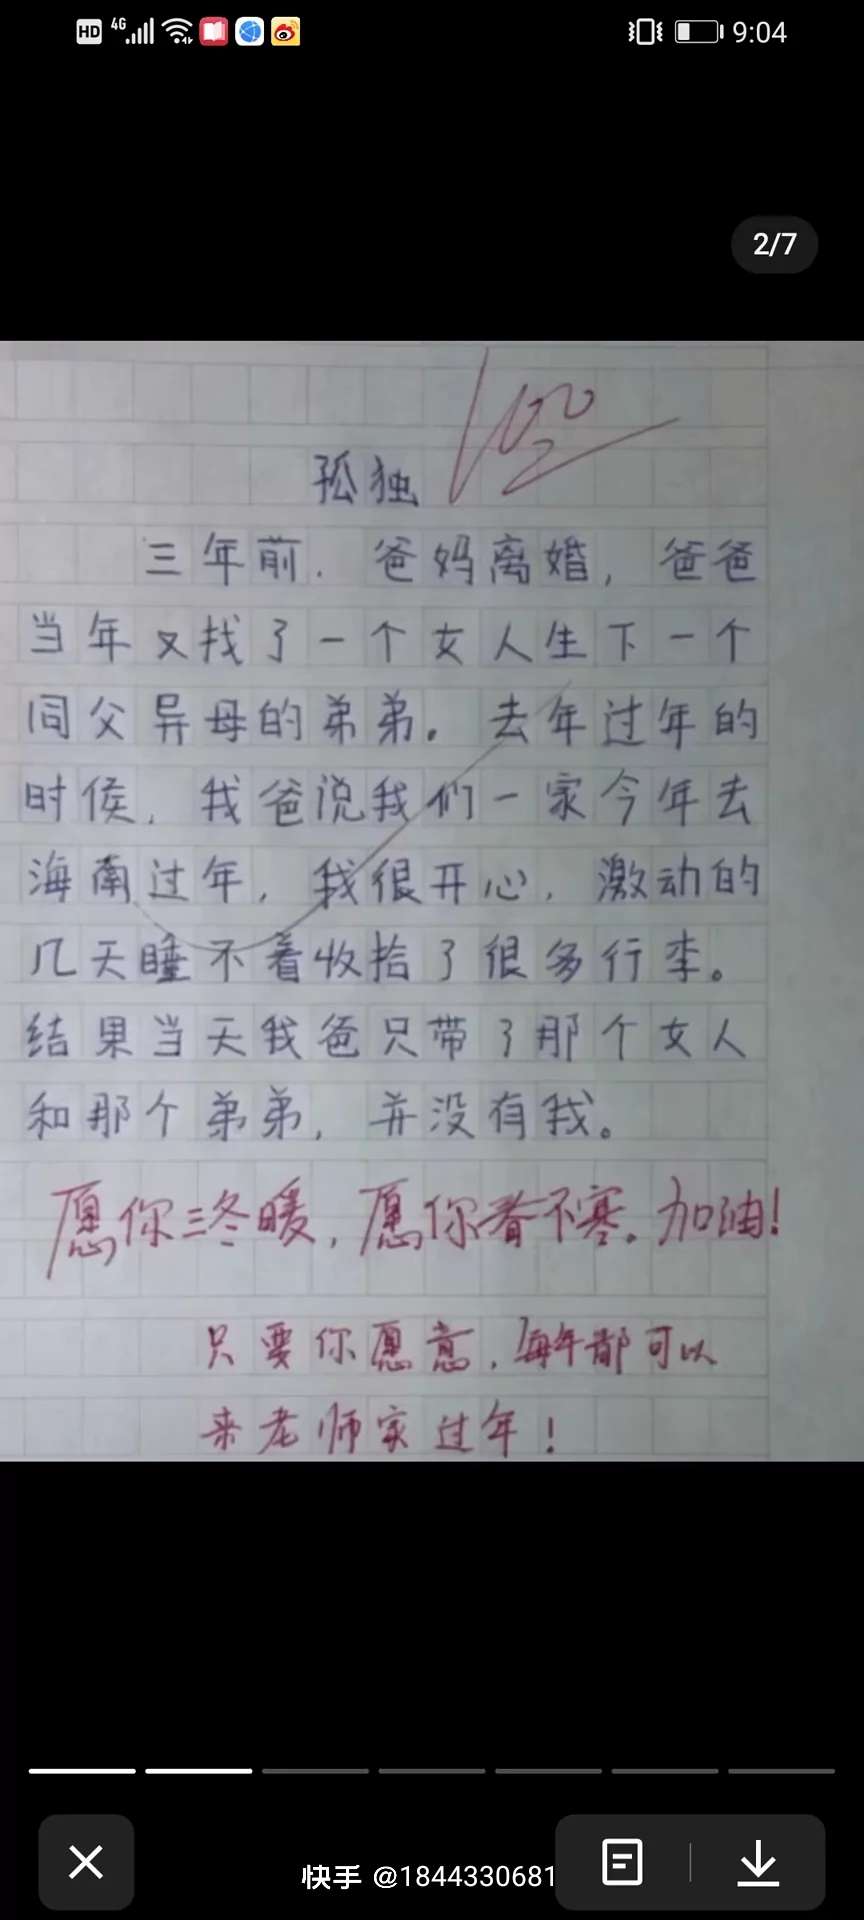 HD 4G 9:04
2/7
100
孤独
三年前. 爸妈离婚, 爸爸
当年又找了一个女人生下一个
同父异母的弟弟。去年过年的
时候, 我爸说我们一家今年去
海南过年, 我很开心, 激动的
几天睡不着收拾了很多行李。
结果当天我爸只带了那个女人
和那个弟弟, 并没有我。
愿你三冬暖, 愿你春不寒。加油!
只要你愿意, 每年都可以
来老师家过年!
快手 @1844330681